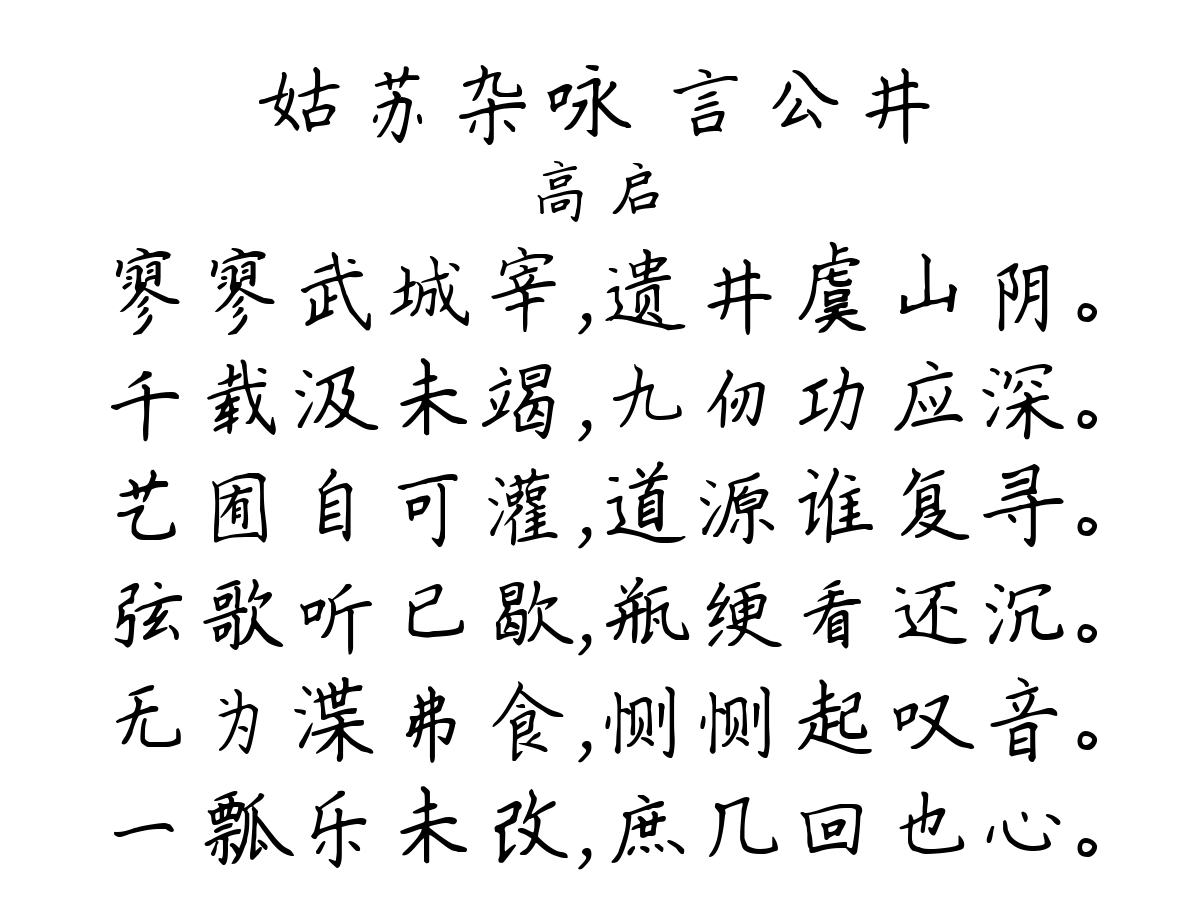 姑苏杂咏 言公井
高启
寥寥武城宰,遗井虞山阴。
千载汲未竭,九仞功应深。
艺囿自可灌,道源谁复寻。
弦歌听已歇,瓶绠看还沉。
无为渫弗食,恻恻起叹音。
一瓢乐未改,庶几回也心。